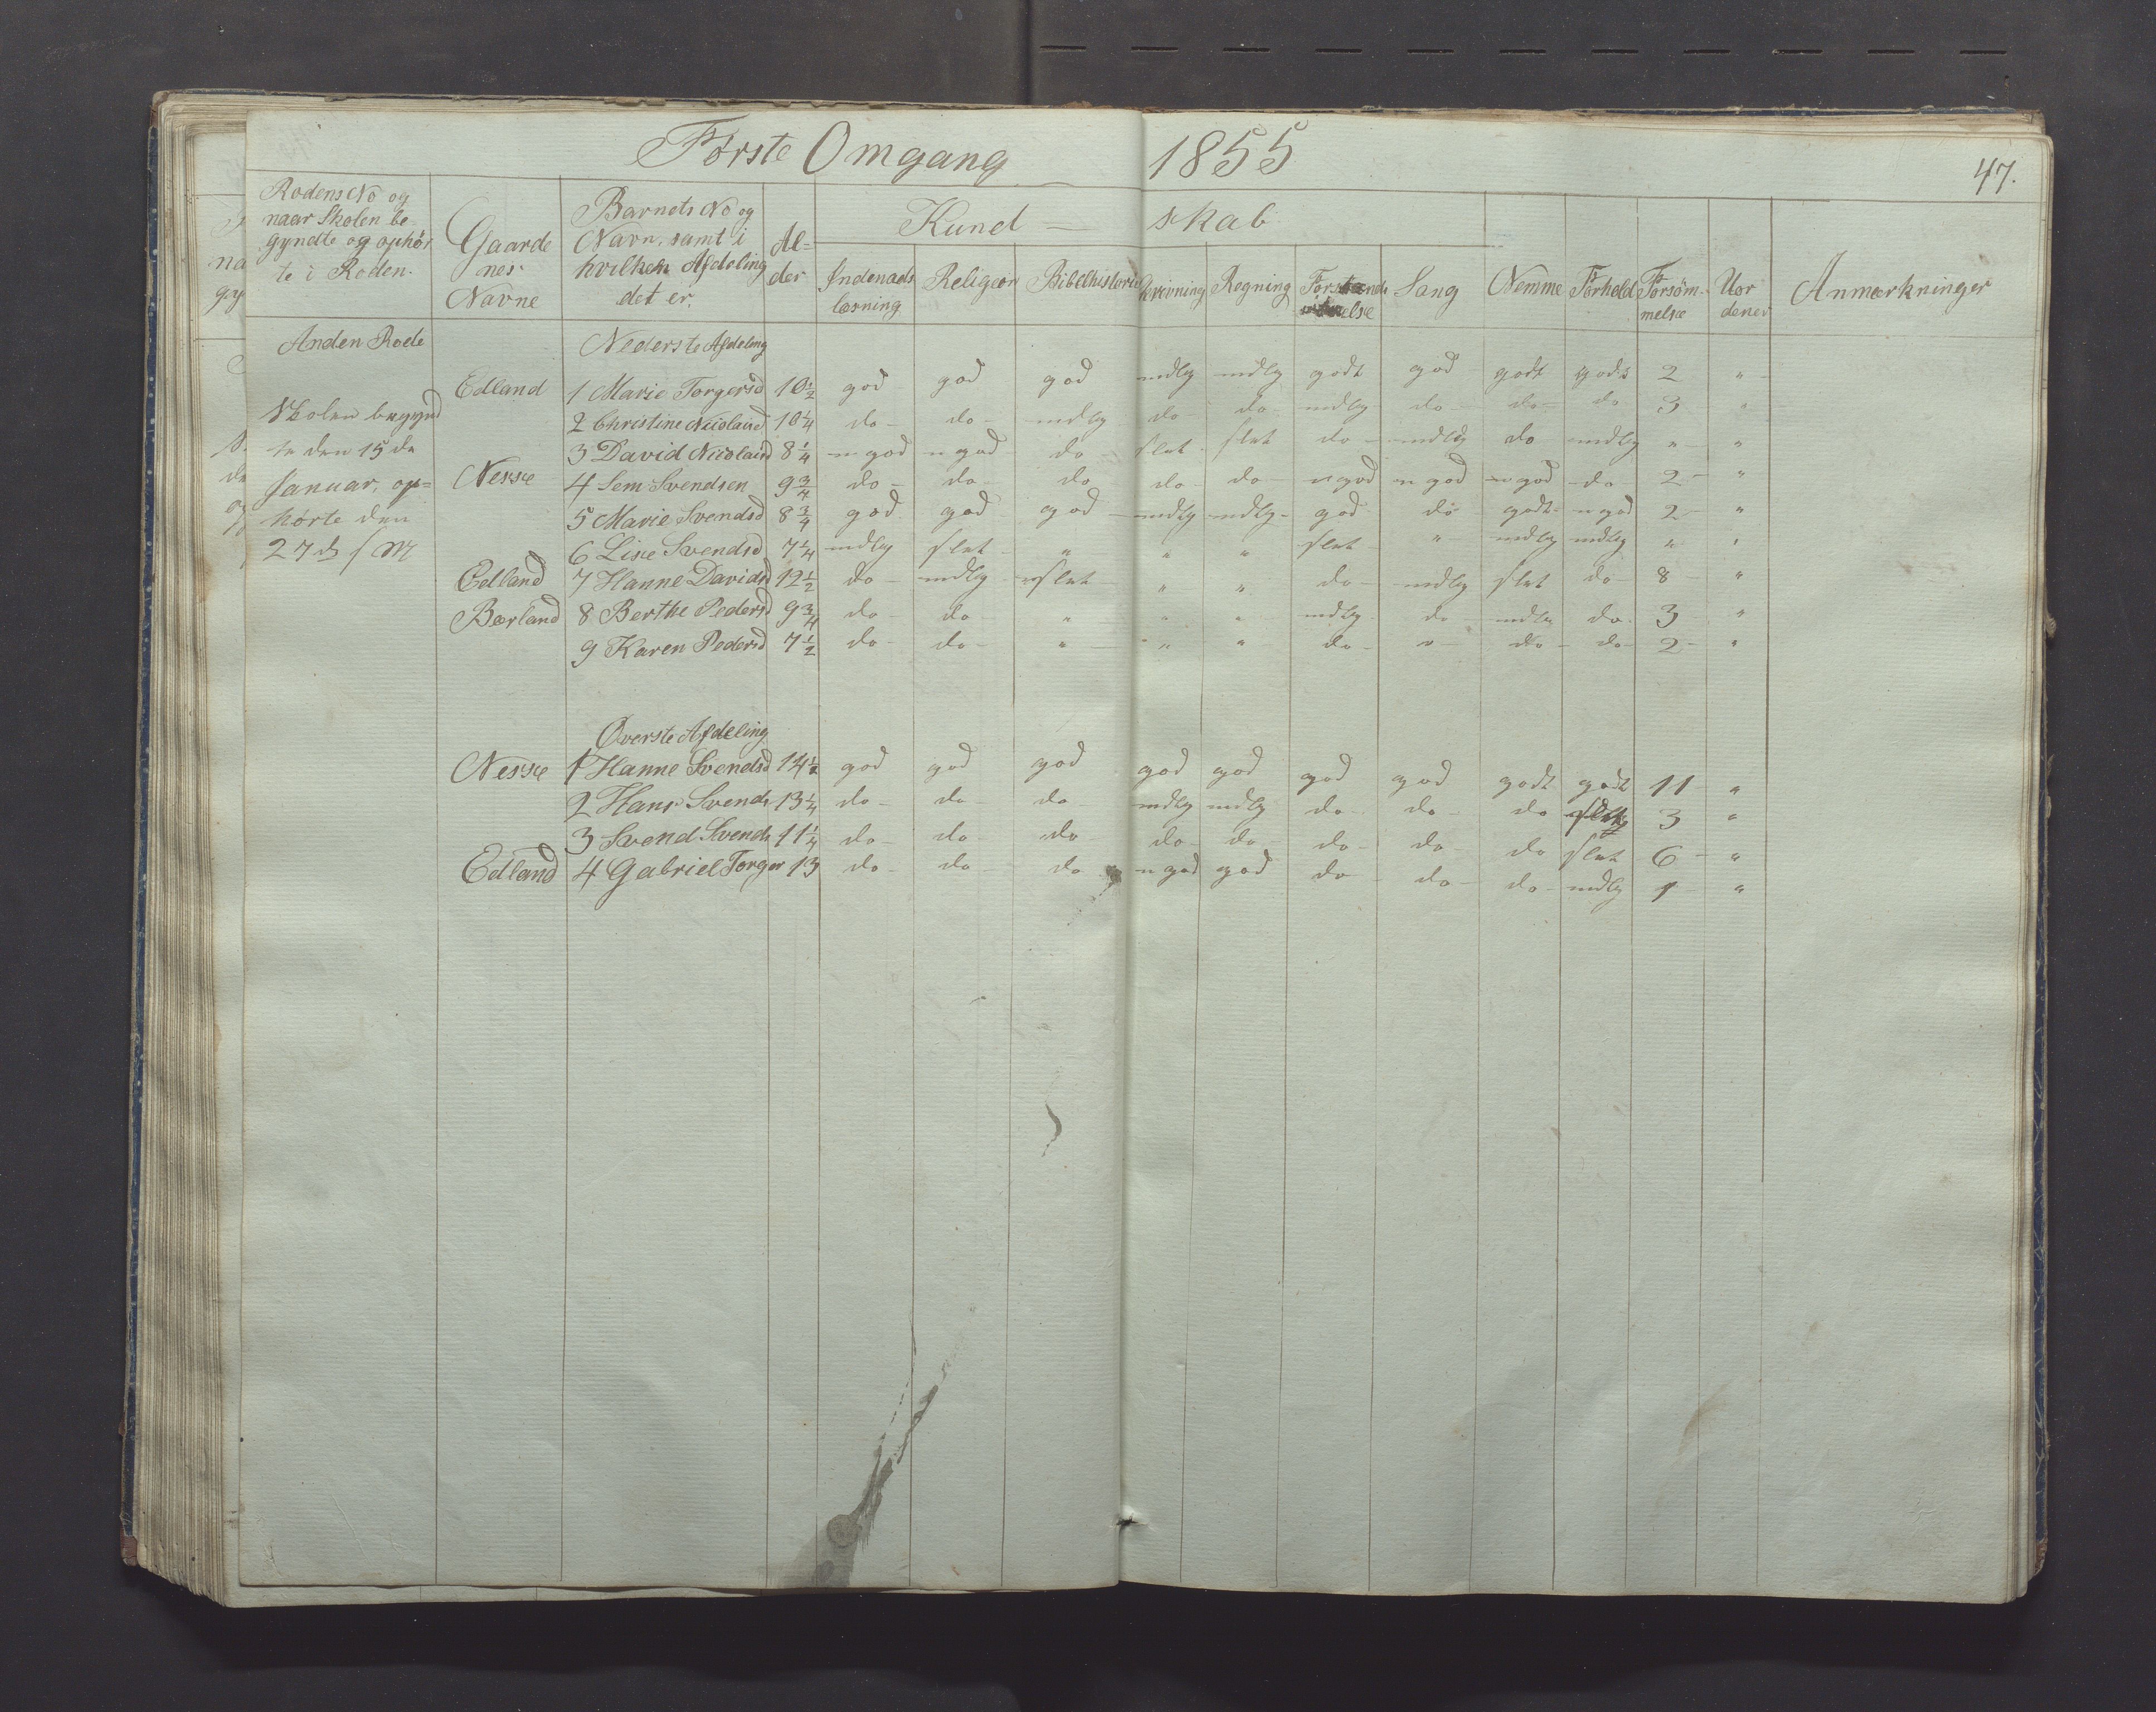 Første Omgang 1855
47.
Rodens No og
naar Skolen be
gyndte og ophør
te i Roden.
Gaarde
nes
Navne
Barnets No og
Navn, samt i
hvilken Afdeling
det er.
Al=
der
Kund — skab
Indenads
læsning
Religion
Bibelhistorie
Skrivning
Regning
Forstands
øvelse
Sang
Nemme
Forhold
Forsøm-
melse
Uor
dener
Anmærkninger
Anden Rode
Nederste Afdeling
Skolen begynd
te den 15 de
Januar, op=
hørte den
27 d s M
Edland 1 Marie Torgersd 10½ god god god mdlg mdlg godt god godt godt 2 "
2 Christine Nicolaisd 10¼ do do mdlg do do mdlg do do do 3 "
3 David Nicolaisd 8¼ n god n god do slet slet do mdlg do mdlg " "
Nesse 4 Sem Svendsen 9¾ do do do do do n god n god n god do 2 "
5 Marie Svendsd 8¾ god god god mdlg mdlg god do godt n god 2 "
6 Lise Svendsd 7¼ mdlg slet " " " slet " mdlg mdlg " "
Edland 7 Hanne Davidsd 12½ do mdlg slet " " do mdlg slet do 8 "
Bærland 8 Berthe Pedersd 9¾ do do " " " mdlg do mdlg do 3 "
9 Karen Pedersd 7½ do do " " " do " do do 2 "
Øverste Afdeling
Nesse 1 Hanne Svendsd 14½ god god god god god god god godt godt 11 "
2 Hans Svends 13¼ do do do mdlg mdlg do do do 3 "
3 Svend Svends 11¼ do do do do do do do do slet 6 "
Edland 4 Gabriel Torger 13 do do do n god god do do do mdlg 1 "